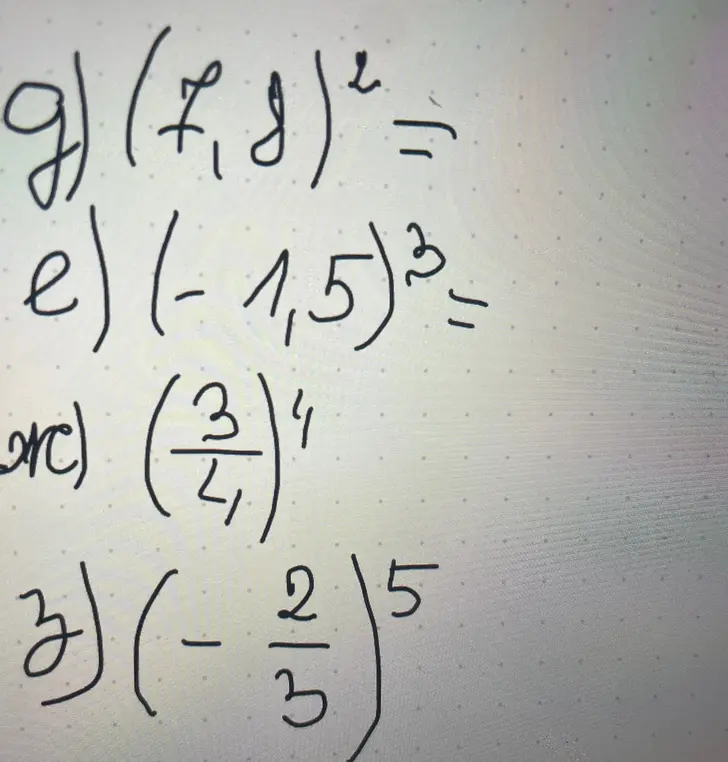 д) (7,8)² =
е) (- 1,5)³ =
ж) (3/4)⁴
з) (- 2/3)⁵